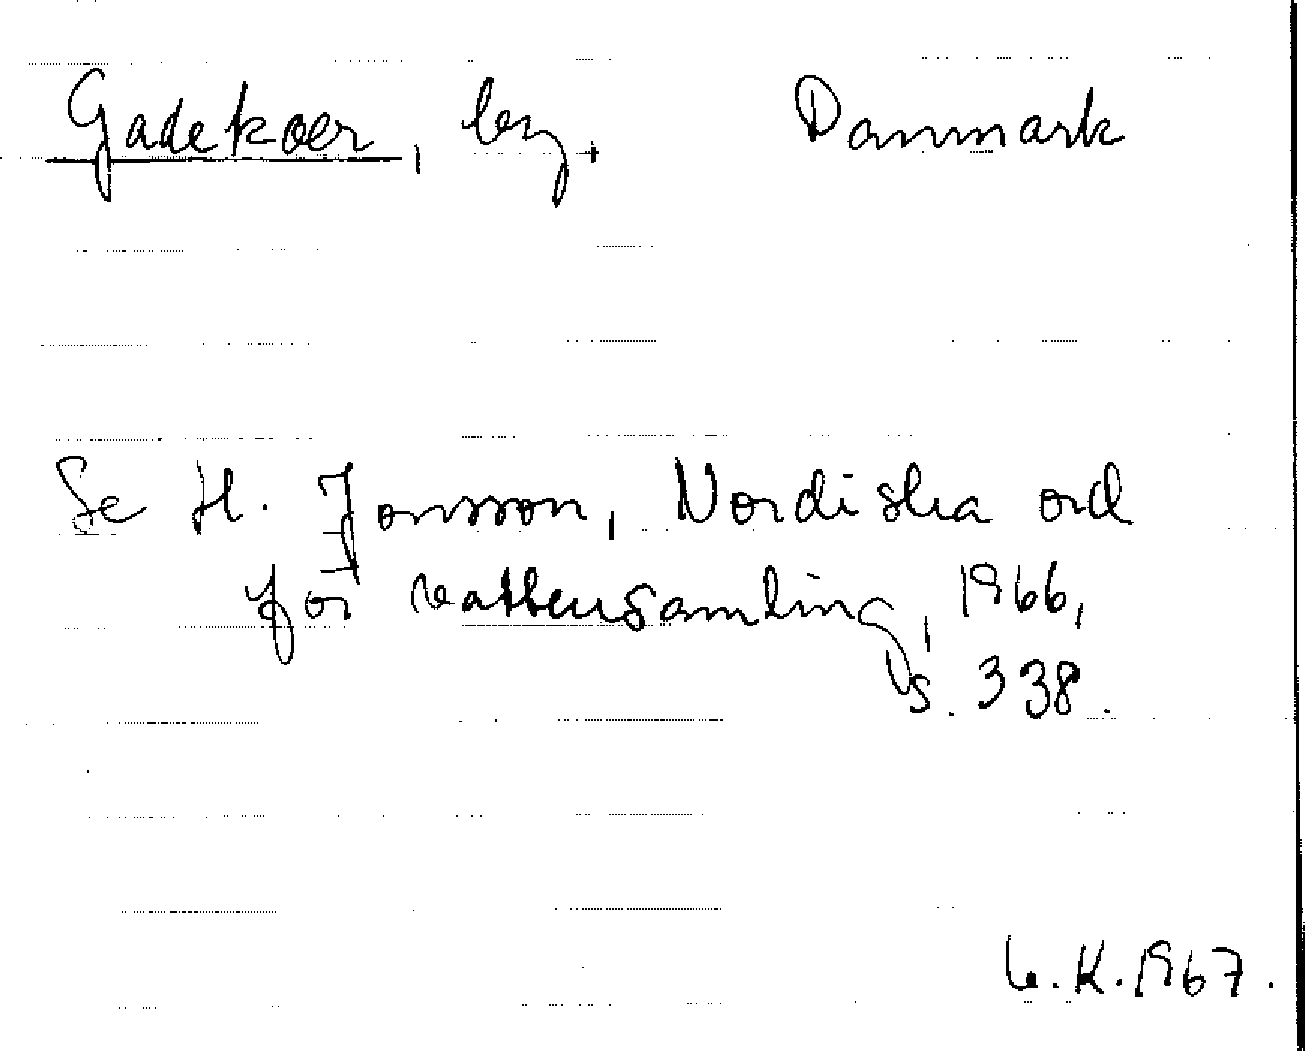 Gadekoer, by. Danmark
Se H. Jonsson, Nordiska ord
för vattensamling, 1966,
s. 338.
K. 1967.